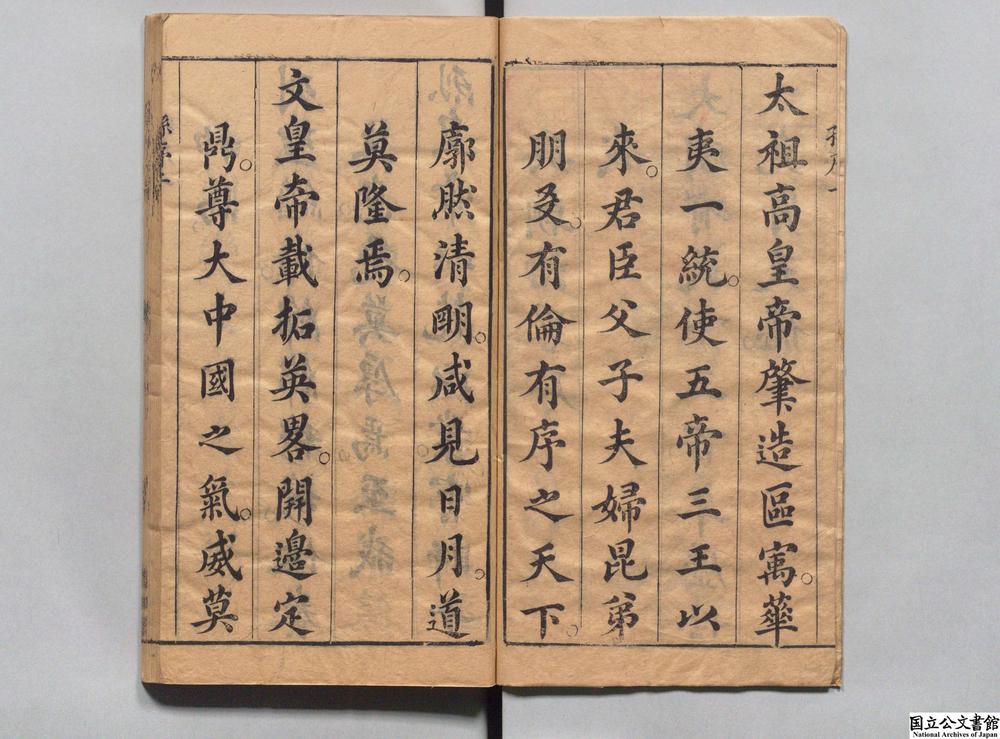 太祖高皇帝肇造區㝢。華
夷一統。使五帝三王以
來。君臣父子夫婦昆弟
朋友。有倫有序之天下。
廓然清明。咸見日月。道
莫隆焉。
文皇帝載拓英畧。開邊定
鼎。尊大中國之氣。威莫
国立公文書館
National Archives of Japan